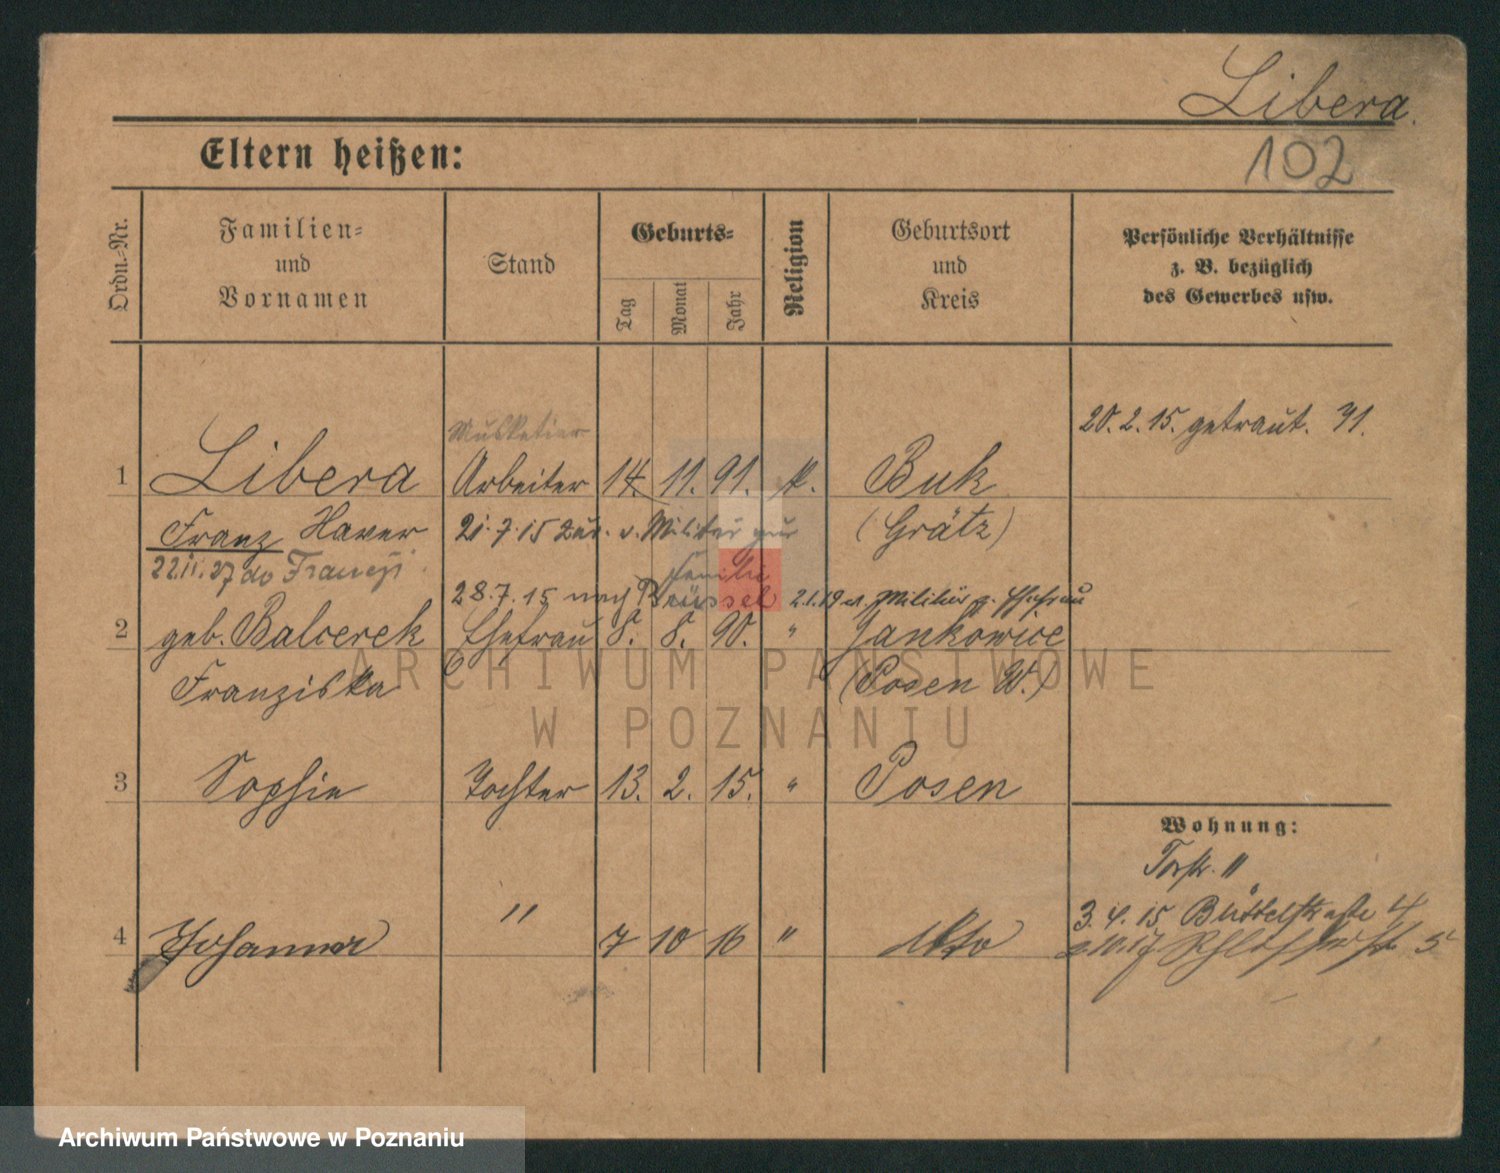 Libera.
102
Eltern heißen:
Ordn.-Nr.
Familien-
und
Vornamen
Stand
Geburts-
Tag
Monat
Jahr
Religion
Geburtsort
und
Kreis
Persönliche Verhältnisse
z. B. bezüglich
des Gewerbes usw.
20. 2. 15. getraut. 31.
Musketier
1 Libera Arbeiter 14. 11. 91. k. Buk
Franz Xaver 21. 7. 15 v. Militär zur (Grätz)
Familie
22.11.27 do Francji
28. 7. 15 nach Brüssel 2.1.19 v. Militär z. Ehefrau
2 geb. Balcerek Ehefrau 8. 8. 90. " Jankowice
Franziska (Posen W.)
3 Sophie Tochter 13. 2. 15. " Posen
Wohnung:
Torstr. 11
3. 4. 15 Büttelstraße 4
4 Johanna " 7 10 16 " dto
Schlosserstr. 5
ARCHIWUM PAŃSTWOWE
W POZNANIU
Archiwum Państwowe w Poznaniu